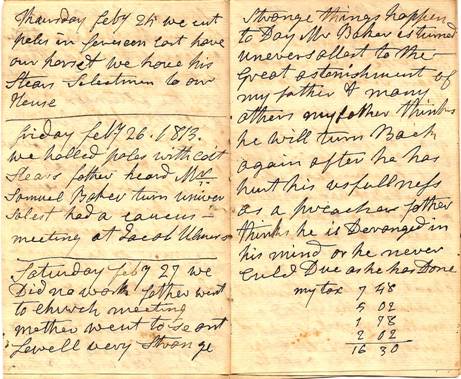 Thursday feby 25 we cut
poles in foreseen Cart have
our horse & we have his
Stears Selectmen to our
House
Friday feby 26. 1813.
we halled poles with Colt
Stears father heard Mr
Samuel Baker turn univer
salest had a caucus
meeting at Jacob
Saturday feby 27 we
Did no work father went
to church meeting
mother went to se ant
Lewell very Strange
Strange things happen
to Day Mr Baker is turned
universallest to the
Great astonishment of
my father & many
others my father thinks
he will turn Back
again after he has
hurt his usfullness
as a preacher father
thinks he is Deranged in
his mind or he never
Culd Due as he has Done
my tax 7 48
5 02
1 78
2 02
16 30